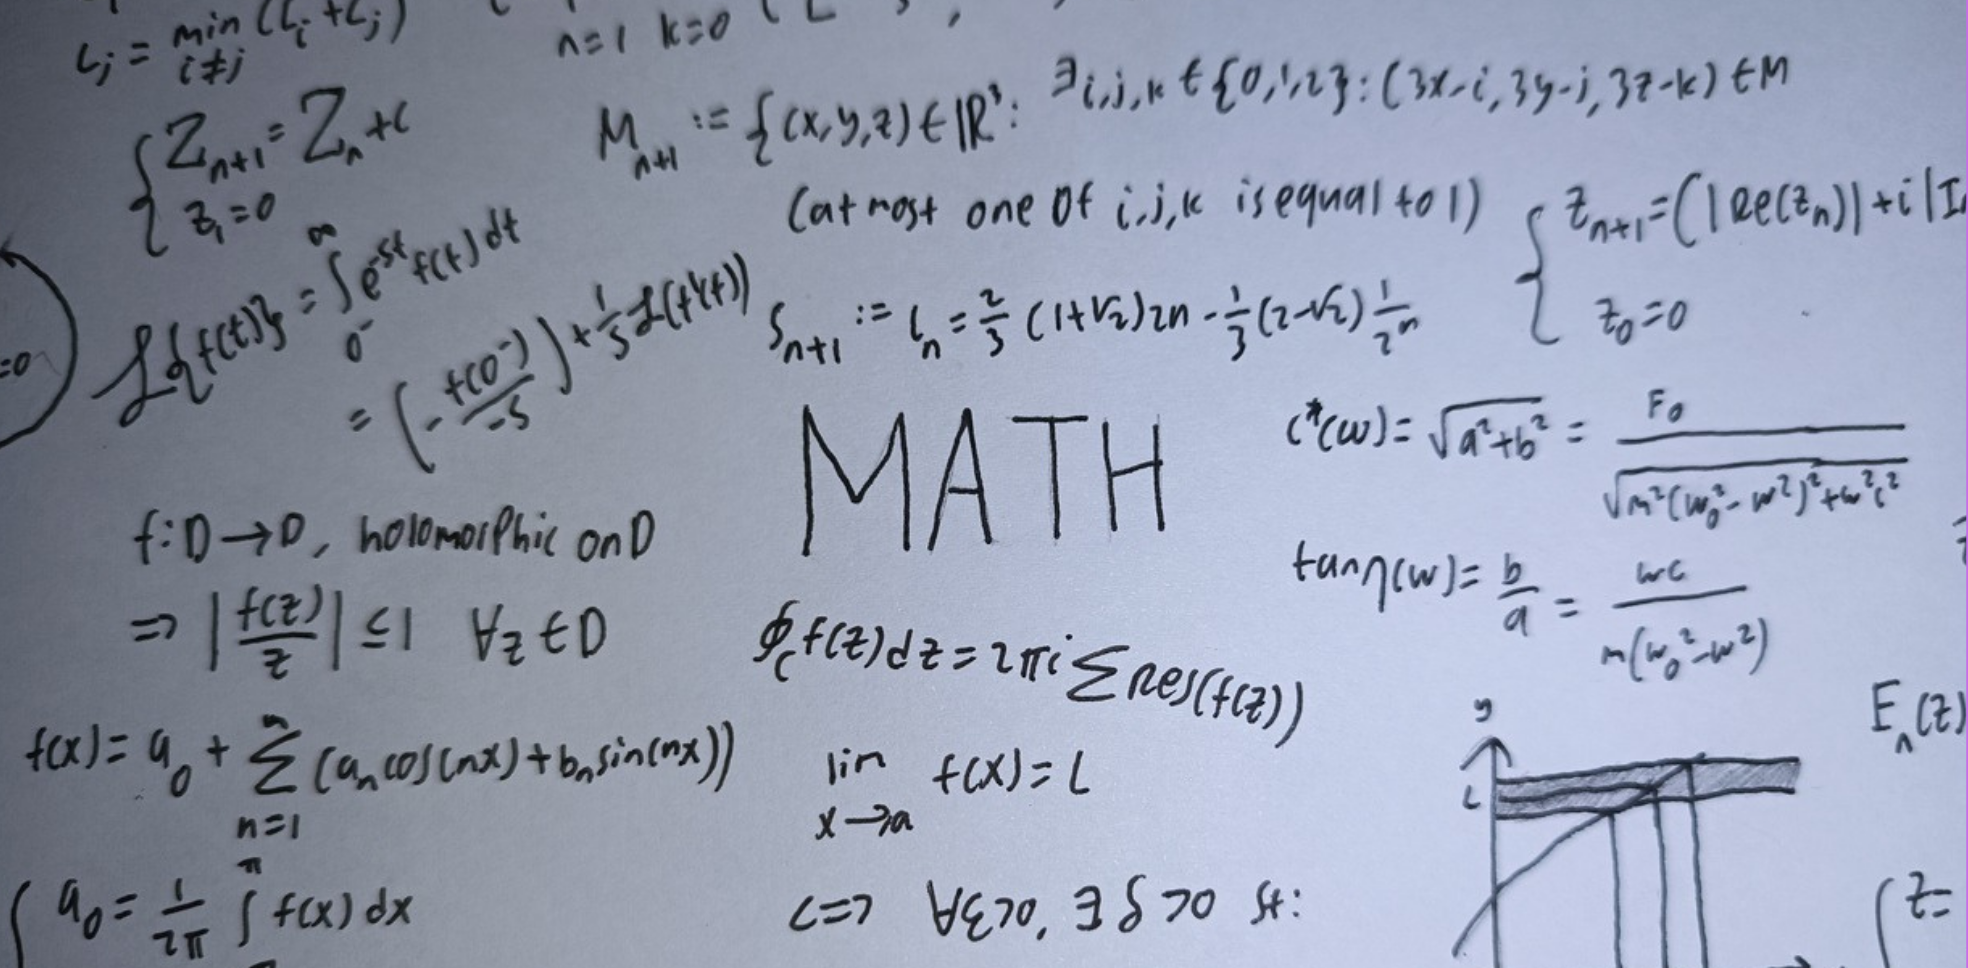 L_j = min_{i≠j} (L_i + L_j)
n=1 k=0
{ Z_{n+1} = Z_n + c
z_1 = 0
M_{n+1} := {(x,y,z) ∈ ℝ³: ∃i,j,k ∈ {0,1,2}: (3x-i, 3y-j, 3z-k) ∈ M
(at most one of i,j,k is equal to 1)
{ z_{n+1} = (|Re(z_n)| + i|I
z_0 = 0
ℒ{f(t)} = ∫_{0^-}^{∞} e^{-st} f(t) dt
= (- f(0^-)/-s) + 1/s ℒ(f'(t))
=0
S_{n+1} := L_n = 2/3 (1+√2) 2n - 1/3 (2-√2) 1/2^n
MATH
C*(ω) = √(a²+b²) = F_0 / √(m²(ω_0²-ω²)²+ω²c²)
tan η(ω) = b/a = ωc / m(ω_0²-ω²)
f: D → D, holomorphic on D
⇒ |f(z)/z| ≤ 1 ∀z ∈ D
∮_C f(z) dz = 2πi Σ Res(f(z))
f(x) = a_0 + Σ_{n=1}^{∞} (a_n cos(nx) + b_n sin(nx))
lim_{x→a} f(x) = L
E_n(z)
y
L
{ a_0 = 1/2π ∫^π f(x) dx
<=> ∀ε>0, ∃ δ>0 st:
{ z=